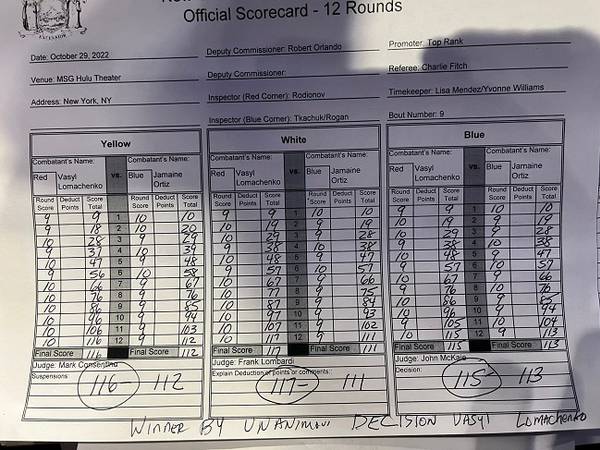 Official Scorecard - 12 Rounds
Date: October 29, 2022 Deputy Commissioner: Robert Orlando Promoter: Top Rank
Venue: MSG Hulu Theater Deputy Commissioner: Referee: Charlie Fitch
Address: New York, NY Inspector (Red Corner): Rodionov Timekeeper: Lisa Mendez/Yvonne Williams
Inspector (Blue Corner): Tkachuk/Rogan Bout Number: 9
Yellow White Blue
Combatant's Name: vs. Combatant's Name: Combatant's Name: vs. Combatant's Name: Combatant's Name: vs. Combatant's Name:
Red Vasyl Lomachenko Blue Jamaine Ortiz Red Vasyl Lomachenko Blue Jamaine Ortiz Red Vasyl Lomachenko Blue Jamaine Ortiz
Round Score Deduct Points Score Total Round Score Deduct Points Score Total Round Score Deduct Points Score Total Round Score Deduct Points Score Total Round Score Deduct Points Score Total Round Score Deduct Points Score Total
9 9 1 10 10 9 9 1 10 10 9 9 1 10 10
9 18 2 10 20 10 19 2 9 19 10 19 2 9 19
10 28 3 9 29 10 29 3 9 28 10 29 3 9 28
9 37 4 10 39 9 38 4 10 38 9 38 4 10 38
10 47 5 9 48 10 48 5 9 47 10 48 5 9 47
9 56 6 10 58 9 57 6 10 57 9 57 6 10 57
10 66 7 9 67 10 67 7 9 66 10 67 7 9 66
10 76 8 9 76 10 77 8 9 75 9 76 8 10 76
10 86 9 9 85 10 87 9 9 84 10 86 9 9 85
10 96 10 9 94 10 97 10 9 93 10 96 10 9 94
10 106 11 9 103 10 107 11 9 102 9 105 11 10 104
10 116 12 9 112 10 117 12 9 111 10 115 12 9 113
Final Score 116 Final Score 112 Final Score 117 Final Score 111 Final Score 115 Final Score 113
Judge: Mark Consentino Judge: Frank Lombardi Judge: John McKaie
Suspensions Explain Deduction of points or comments: Decision:
116 - 112 117 - 111 115 - 113
WINNER BY UNANIMOUS DECISION VASYL LOMACHENKO